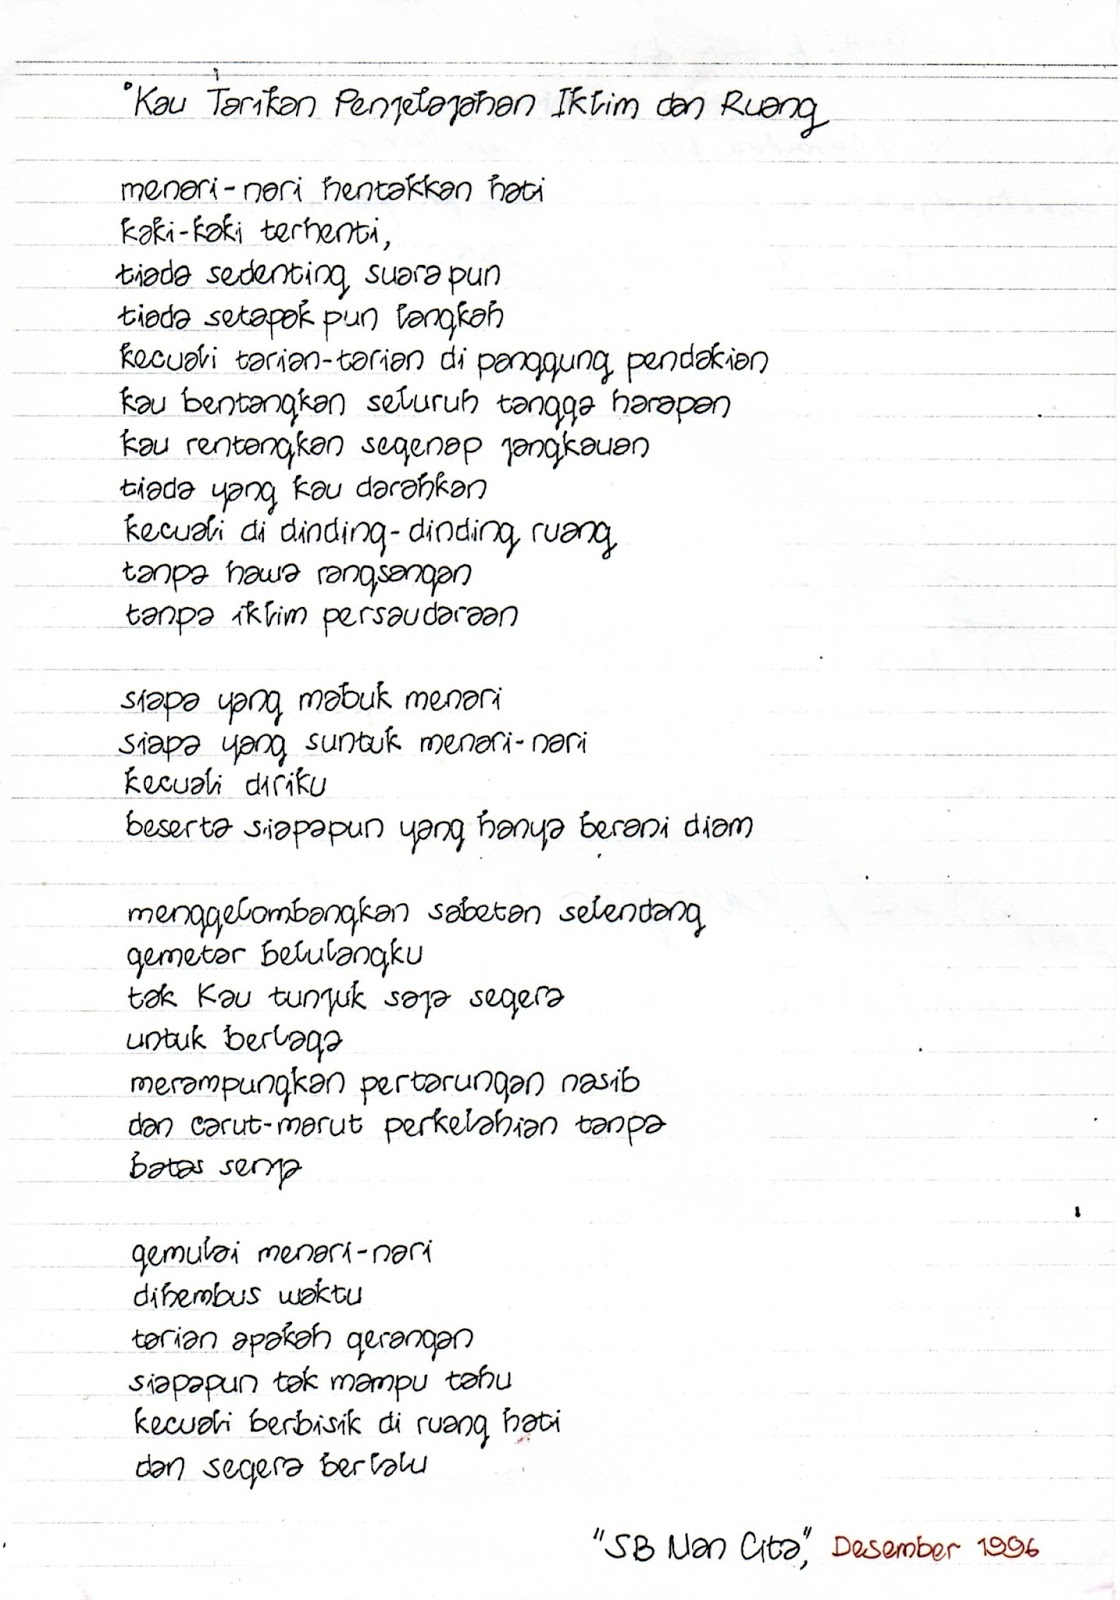 °Kau Tarikan Penjelajahan Iklim dan Ruang
menari-nari hentakkan hati
kaki-kaki terhenti,
tiada sedenting suarapun
tiada setapak pun langkah
kecuali tarian-tarian di panggung pendakian
kau bentangkan seluruh tangga harapan
kau rentangkan segenap jangkauan
tiada yang kau darahkan
kecuali di dinding-dinding ruang
tanpa hawa rangsangan
tanpa iklim persaudaraan
siapa yang mabuk menari
siapa yang suntuk menari-nari
kecuali diriku
beserta siapapun yang hanya berani diam
menggelombangkan sabetan selendang
gemetar belulangku
tak Kau tunjuk saja segera
untuk berlaga
merampungkan pertarungan nasib
dan carut-marut perkelahian tanpa
batas senja
gemulai menari-nari
dihembus waktu
tarian apakah gerangan
siapapun tak mampu tahu
kecuali berbisik di ruang hati
dan segera berlalu
"SB Nan Cita", Desember 1996